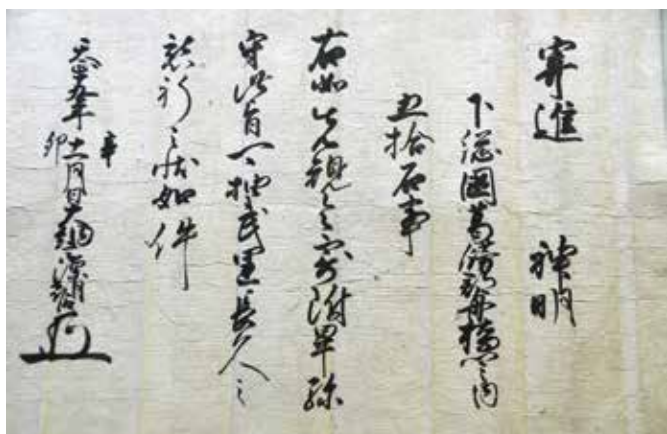 寄進 神明
下総國葛餝郡舟橋之内
五拾石事
右如先規令寄附畢弥
守此旨可抽武運長久之
懇祈之状如件
天正十九年辛卯十一月日大納言源朝臣